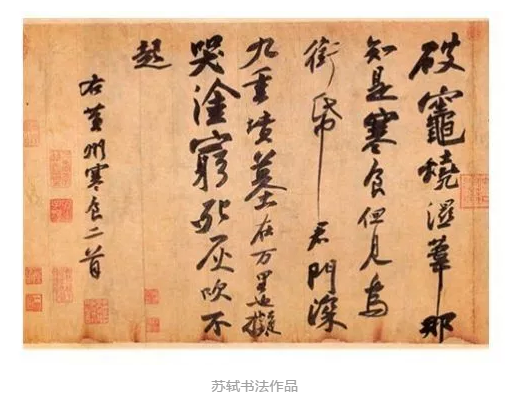 破竈燒濕葦那
知是寒食但見烏
銜帋君門深
九重墳墓在万里也擬
哭塗窮死灰吹不
起
右黄州寒食二首
苏轼书法作品